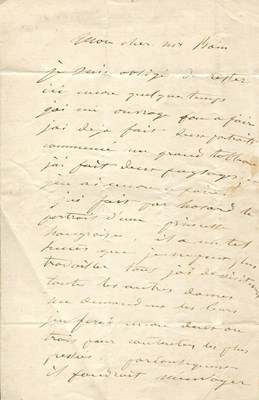 Mon cher
je suis obligé de rester
ici encore quelque temps
j'ai un ouvrage fou a faire
j'ai deja fait deux portraits
commencé un grand tableau
j'ai fait deux paysages
j'en ai encore a faire
j'ai fait par hazard le
portrait d'une princesse
hongroise, il a un tel
succès que je ne peux plus
travailler
toute les autres dames
me demandent les leurs
j'en ferai encore deux ou
trois pour contenter les plus
pressées
il faudroit m'envoyer